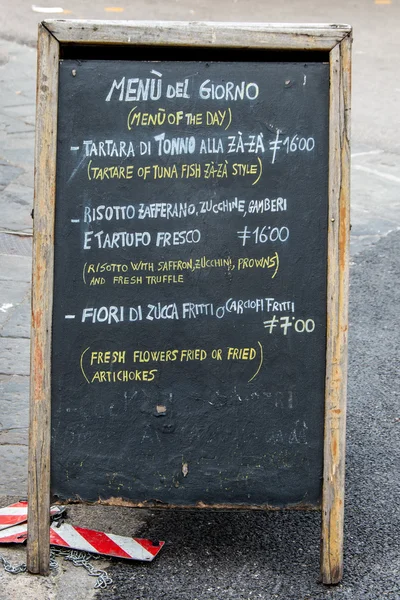 MENÙ DEL GIORNO
(MENÙ OF THE DAY)
- TARTARA DI TONNO ALLA ZÀ-ZÀ €16'00
(TARTARE OF TUNA FISH ZÀ-ZÀ STYLE)
- RISOTTO ZAFFERANO, ZUCCHINE, GAMBERI
E TARTUFO FRESCO €16'00
(RISOTTO WITH SAFFRON, ZUCCHINI, PROWNS
AND FRESH TRUFFLE)
- FIORI DI ZUCCA FRITTI O CARCIOFI FRITTI
€7'00
(FRESH FLOWERS FRIED OR FRIED
ARTICHOKES)